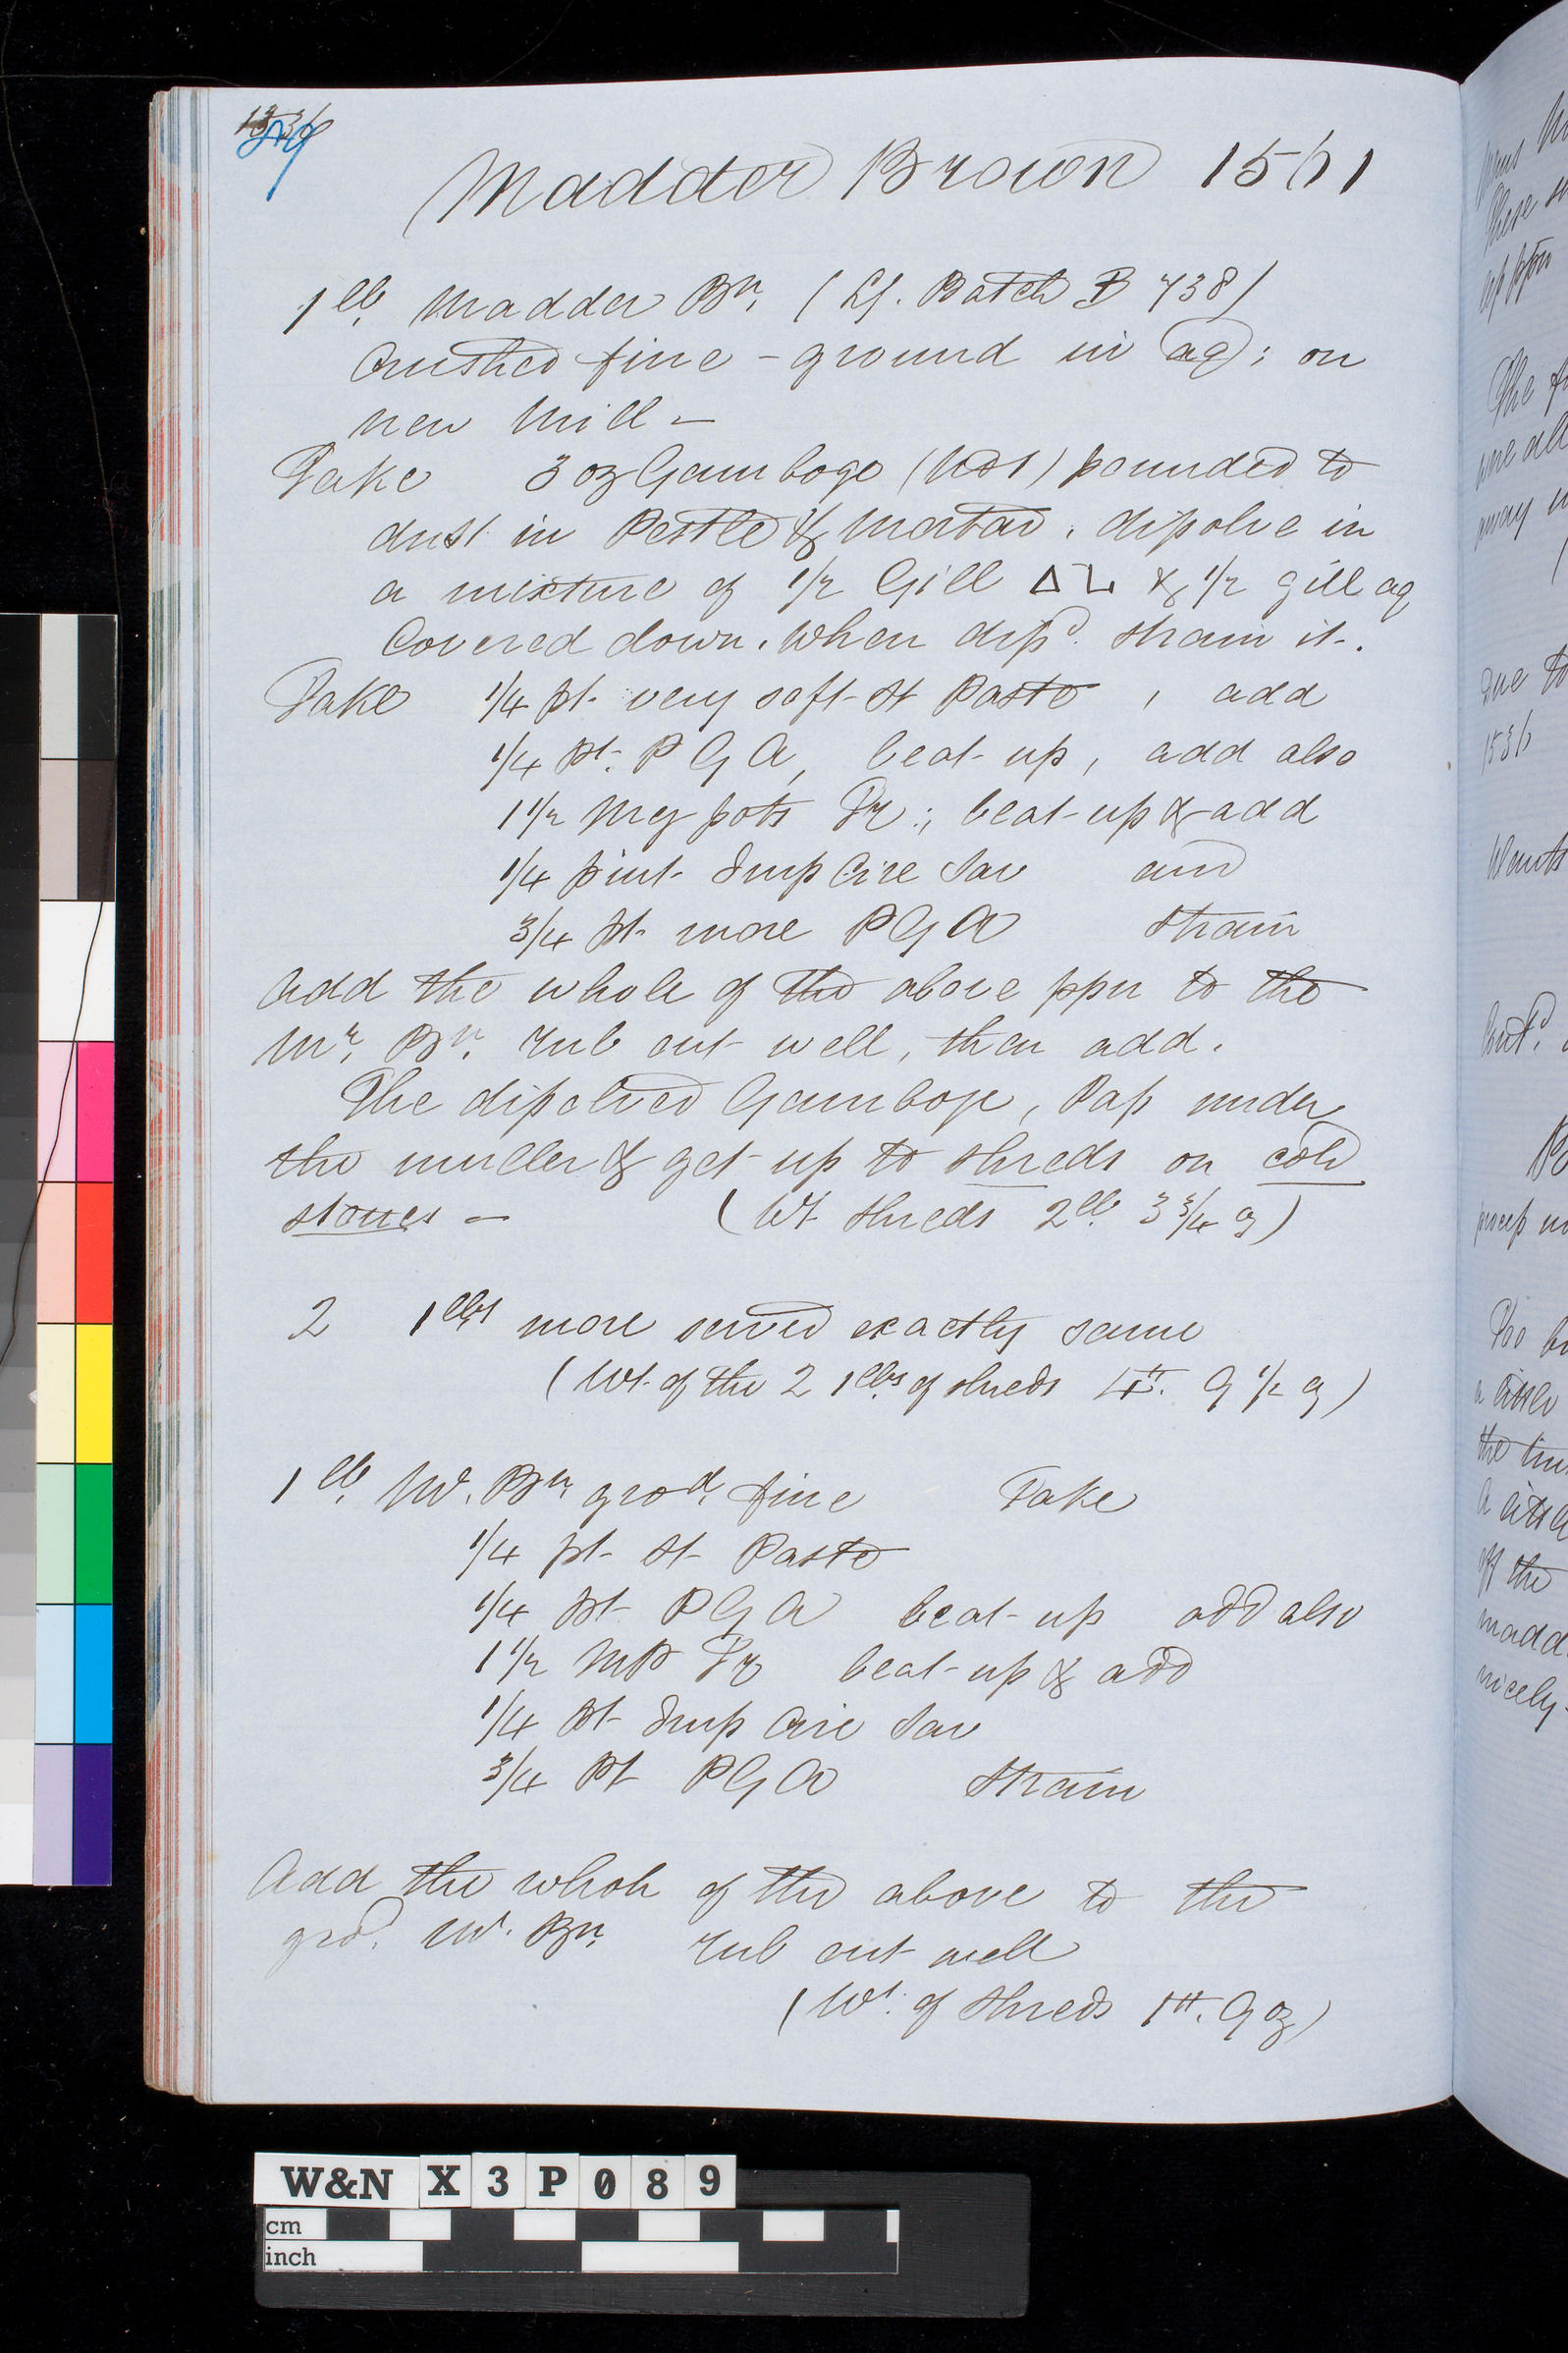 89
Madder Brown 1561
1 lb. Madder Bn. (Lf. Batch B 738)
Crushed fine - ground in aq: on
new Mill -
Take 3 oz Gamboge (No 1) pounded to
dust in Pestle & Mortar. dissolve in
a mixture of 1/2 Gill & 1/2 gill aq
Covered down. When dissd. strain it.
Take 1/4 pt. very soft St Paste, add
1/4 pt. P G A, beat up, add also
1 1/2 Mg pots Tr:; beat up & add
1/4 pint Imp Cire Sav and
3/4 pt. more P G A strain
Add the whole of the above ppn to the
Mr. Bn. rub out well, then add.
The dissolved Gamboge, Pass under
the muller & get up to shreds on cold
stones - (Wt shreds 2 lb. 3 3/4 oz)
2 1 lbs more served exactly same
(Wt. of the 2 1 lbs of shreds 4 lb. 9 1/2 oz)
1 lb. M. Bn. grod. fine Take
1/4 pt St Paste
1/4 Pt P G A beat up add also
1 1/2 MP Tr beat up & add
1/4 Pt Imp Cire Sav
3/4 Pt P G A Strain
Add the whole of the above to the
grd. M. Bn. rub out well
(Wt. of shreds 1 lb. 9 oz)
W&N X 3 P 0 8 9
cm
inch